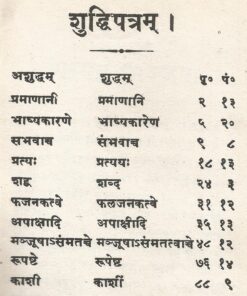 शुद्धिपत्रम् ।
अशुद्धम् शुद्धम् पृ॰ पं॰
प्रमाणानी प्रमाणानि २ १३
भाष्यकारणे भाष्यकारेण ५ २०
सभवाच्च संभवाच्च ९ ८
प्रत्यः प्रत्ययः १८ १३
शद्ब शब्द २४ ३
फजनकत्वे फलजनकत्वे ३१ १२
अपाक्षादि अपाक्षीदि ३५ १३
मञ्जूषाऽसंमतत्वे मञ्जूषाऽसंमतत्वाच्चे ४८ १२
रूपष्टे रूपेष्ट ७६ १४
काशी काशीं ८८ ९